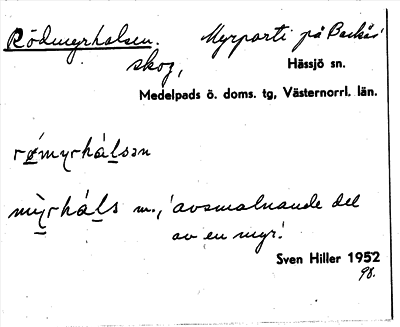 Rödmyrhalsen. Myrparti på Backås
skog, Hässjö sn.
Medelpads ö. doms. tg, Västernorrl. län.
rǿmyrhálsən
mỳrháls m., 'avsmalnande del
av en myr'.
Sven Hiller 1952
98.